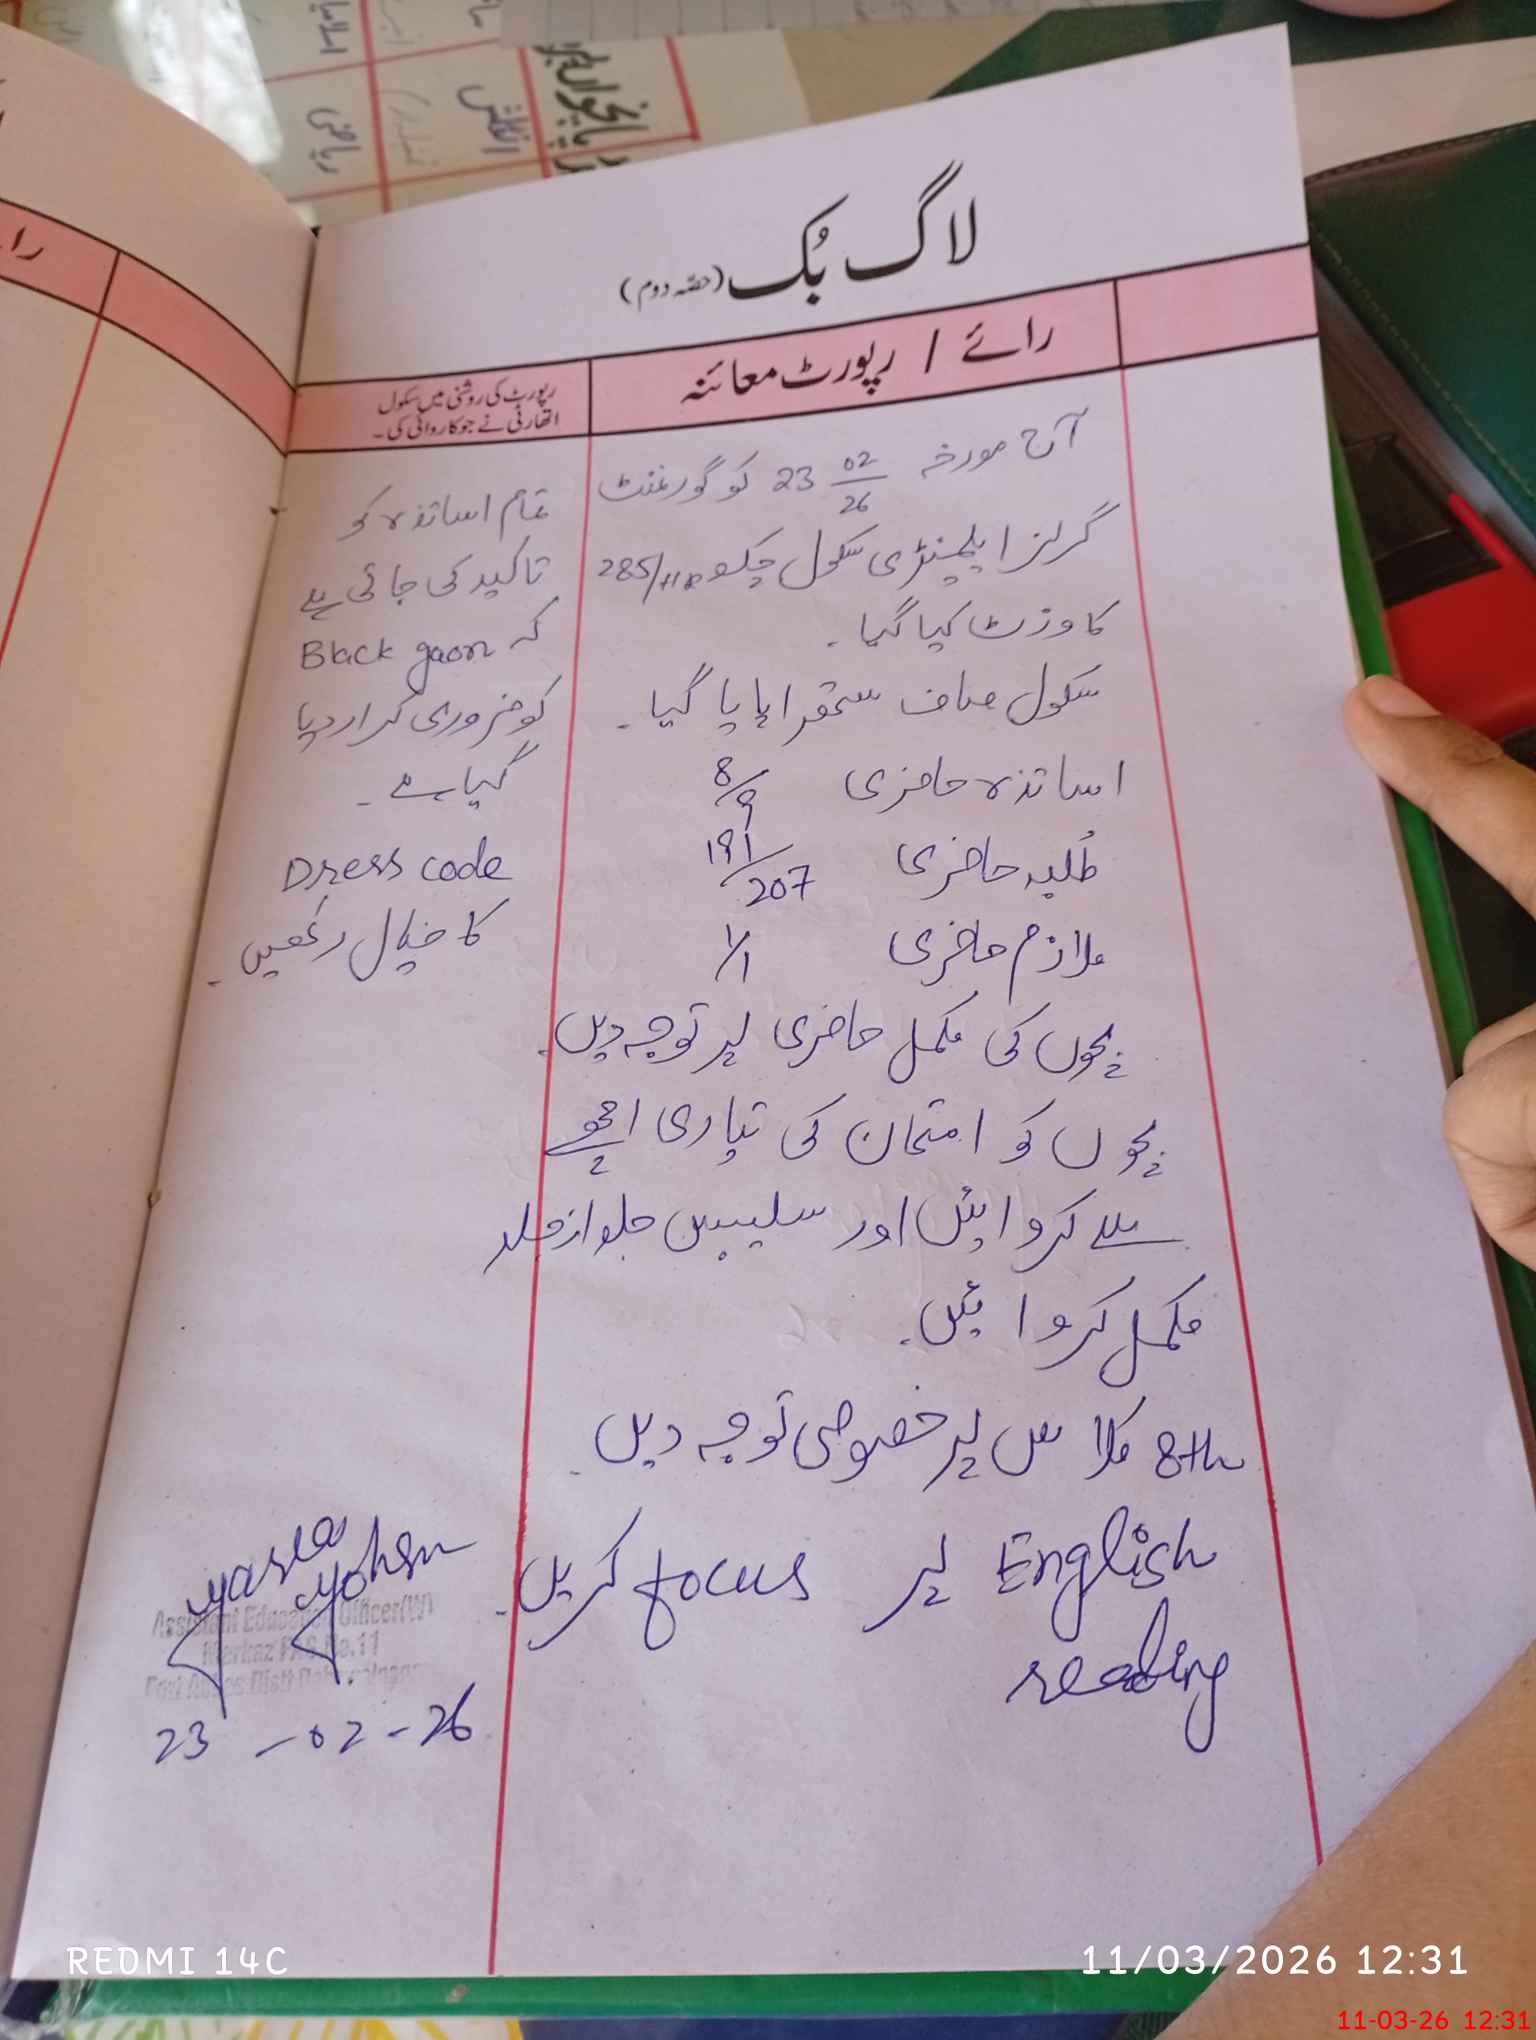 لاگ بُک (حصّہ دوم)
رائے / رپورٹ معائنہ
آج مورخہ 23 02/26 کو گورنمنٹ
گرلز ایلیمنٹری سکول چک 285/HR
کا وزٹ کیا گیا۔
سکول صاف ستھرا پایا گیا۔
اساتذہ حاضری 8/9
طلبہ حاضری 191/207
ملازم حاضری 1/1
بچوں کی مکمل حاضری پر توجہ دیں۔
بچوں کو امتحان کی تیاری اچھے
سے کروائیں اور سلیبس جلد از جلد
مکمل کروائیں۔
8th کلاس پر خصوصی توجہ دیں۔
English پر focus کریں۔
reading
رپورٹ کی روشنی میں سکول
اتھارٹی نے جو کاروائی کی۔
تمام اساتذہ کو
تاکید کی جاتی ہے
کہ Black gaon
کو ضروری قرار دیا
گیا ہے۔
Dress code
کا خیال رکھیں۔
Assistant Education Officer(W)
Markaz No.11
23-02-26
پانچواں
انگلش
ریاضی
REDMI 14C
11/03/2026 12:31
11-03-26 12:31